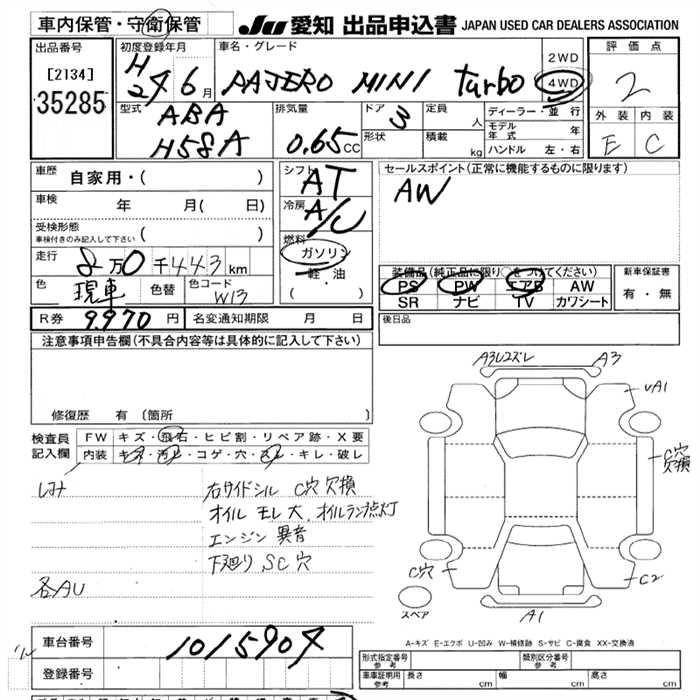 車内保管・守衛保管
JU 愛知 出品申込書 JAPAN USED CAR DEALERS ASSOCIATION
出品番号
[2134]
35285
初度登録年月
H
24 6 月
車名・グレード
PAJERO MINI turbo
2WD
4WD
評価点
2
型式
ABA
H58A
排気量
0.65 CC
ドア
3
形状
定員
人
積載
kg
ディーラー・並行
モデル年式 年
ハンドル 左・右
外装 内装
E C
車歴 自家用・( )
車検 年 月( 日)
受検形態
車検付きのみ記入して下さい ( )
走行 8 万 0 千 443 km
色 現車 色替 色コード W13
シフト AT
冷房 A/C
燃料
ガソリン
軽・油
( )
セールスポイント(正常に機能するものに限ります)
AW
装備品(純正品に限り○をつけてください)
PS PW エアB AW
SR ナビ TV カワシート
新車保証書
有・無
R券 9,970 円 名変通知期限 月 日
後日品
注意事項申告欄(不具合内容等は具体的に記入して下さい)
修復歴 有 〔箇所 〕
検査員記入欄
FW キズ・飛石・ヒビ割・リペア跡・X要
内装 キズ・汚レ・コゲ・穴・スレ・キレ・破レ
右サイドシル C穴 欠損
オイルモレ大、オイルランプ点灯
エンジン異音
下廻り SC穴
各AU
A3U2ズレ A3
UA1
C穴
欠損
C穴
C2
スペア
A1
A-キズ E-エクボ U-凹み W-補修跡 S-サビ C-腐食 XX-交換済
車台番号 1015904
登録番号
型式指定番号
参考
類別区分番号
参考
車庫証明用
参考
長さ cm 幅 cm 高さ cm